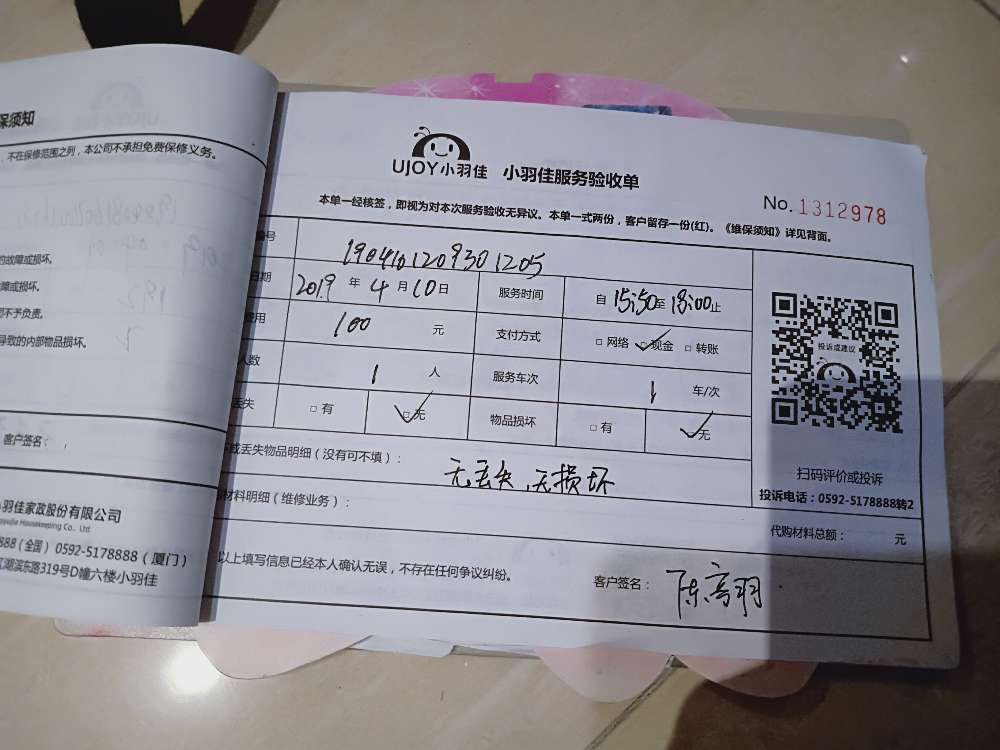 保须知
，不在保修范围之列，本公司不承担免费保修义务。
的故障或损坏。
障或损坏。
司不予负责。
导致的内部物品损坏。
客户签名：
小羽佳家政股份有限公司
Housekeeping Co., Ltd.
888（全国） 0592-5178888（厦门）
湖滨东路319号D幢六楼小羽佳
UJOY小羽佳 小羽佳服务验收单
No. 1312978
本单一经核签，即视为对本次服务验收无异议。本单一式两份，客户留存一份(红)。《维保须知》详见背面。
编号 1904101209301205
日期 2019 年 4 月 10 日 服务时间 自 15:50 至 18:00 止
费用 100 元 支付方式 □ 网络 □ 现金 □ 转账
人数 1 人 服务车次 1 车/次
丢失 □ 有 □ 无 物品损坏 □ 有 □ 无
投诉或建议
扫码评价或投诉
投诉电话：0592-5178888转2
或丢失物品明细（没有可不填）： 无丢失，无损坏
材料明细（维修业务）：
代购材料总额： 元
以上填写信息已经本人确认无误，不存在任何争议纠纷。
客户签名： 陈高羽